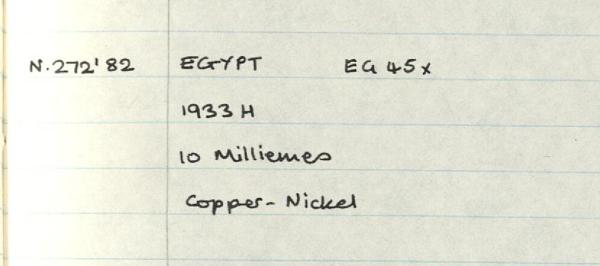 N.272'82 EGYPT EG 45x
1933 H
10 Milliemes
Copper-Nickel